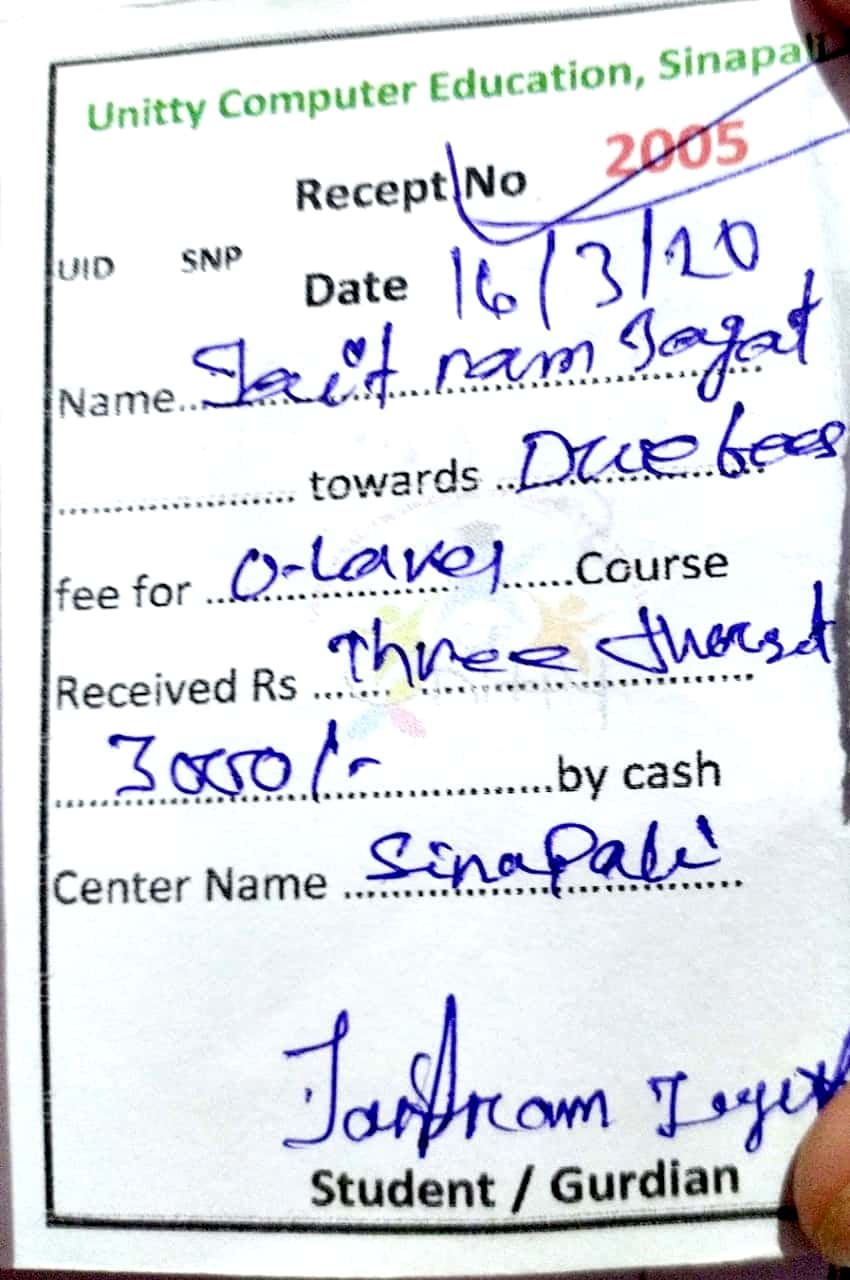 Unitty Computer Education, Sinapali
Recept No 2005
UID SNP
Date 16/3/20
Name.. ram Jagat
.................... towards .. Due fees
fee for .. O-Lavel ......Course
Received Rs ...... Three
3000/- ..........by cash
Center Name ... Sinapali
Student / Gurdian